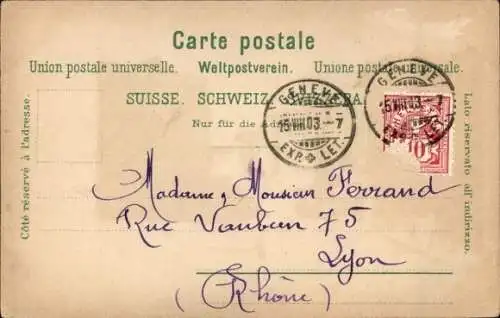 Carte postale
Union postale universelle. Weltpostverein. Unione postale universale.
SUISSE. SCHWEIZ. SVIZZERA.
Nur für die Adresse
Côté réservé à l'adresse.
Lato riservato all'indirizzo.
GENÈVE
15 VIII 03. - 7
EXP. LET.
GENÈVE
15 VIII 03. - 7
EXP. LET.
10
Madame, Monsieur Ferrand
Rue Vauban 75
Lyon
(Rhône)